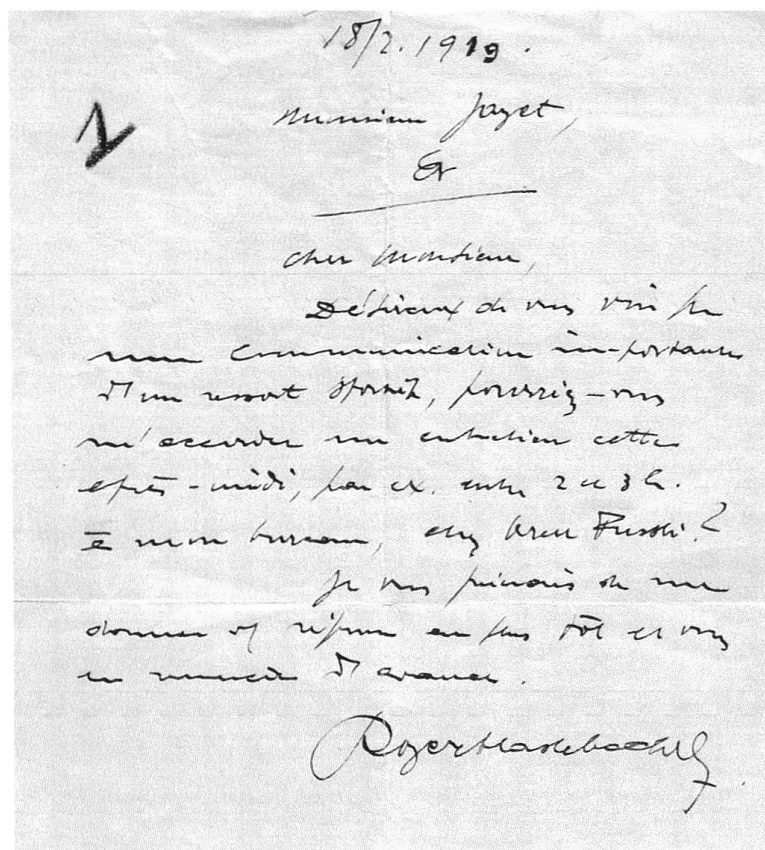 18/2.1919.
Monsieur Jayet,
Ev
Cher Monsieur,
Désireux de vous voir pr
une communication importante
d'un ressort sportif, pourriez-vous
m'accorder un entretien cette
après-midi, par ex. entre 2 et 3 h.
à mon bureau, chez ?
Je vous prierais de me
donner réponse au plus tôt et vous
en remercie d'avance.
Roger